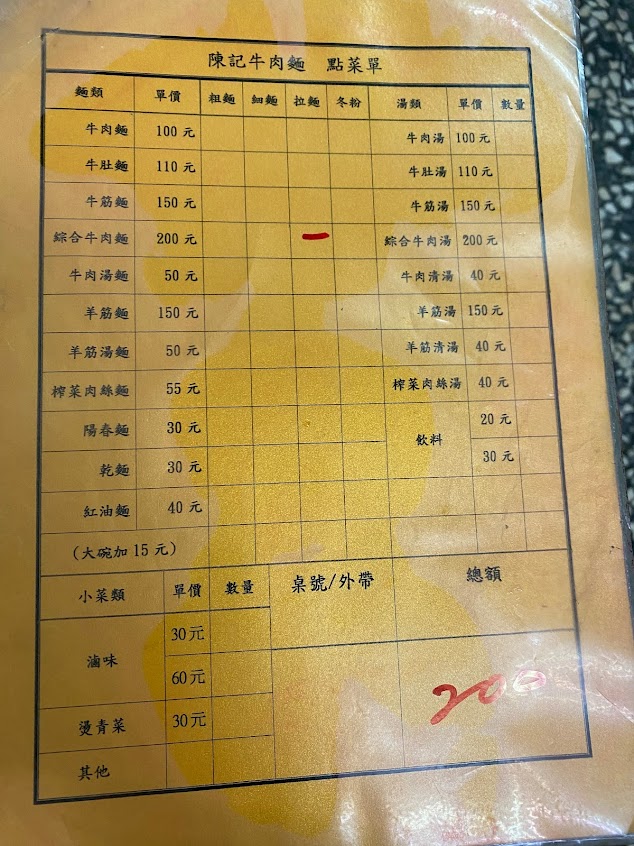 陳記牛肉麵 點菜單
麵類 單價 粗麵 細麵 拉麵 冬粉 湯類 單價 數量
牛肉麵 100元 牛肉湯 100元
牛肚麵 110元 牛肚湯 110元
牛筋麵 150元 牛筋湯 150元
綜合牛肉麵 200元 一 綜合牛肉湯 200元
牛肉湯麵 50元 牛肉清湯 40元
羊筋麵 150元 羊筋湯 150元
羊筋湯麵 50元 羊筋清湯 40元
榨菜肉絲麵 55元 榨菜肉絲湯 40元
陽春麵 30元 飲料 20元
乾麵 30元 30元
紅油麵 40元
(大碗加15元)
小菜類 單價 數量 桌號/外帶 總額
滷味 30元
60元 200
燙青菜 30元
其他